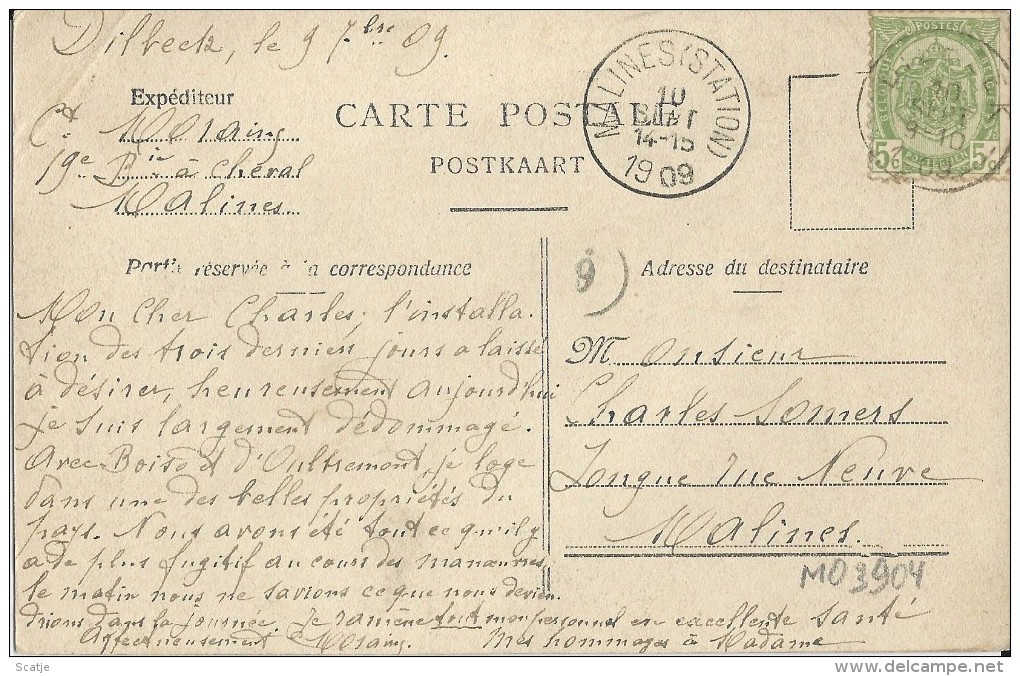 Dilbeck, le 9 7bre 09.
Expéditeur
CARTE POSTALE
POSTKAART
Cpt
19e Bie à cheval
Malines.
MALINES (STATION)
10
14-15
1909
POSTES
BELGIQUE
5c 5c
Partie réservée à la correspondance
Adresse du destinataire
9
Mon cher Charles, l'installa.
tion des trois derniers jours a laissé
à désirer, heureusement aujourd'hui
je suis largement dédommagé.
Avec d'Oultremont, je loge
dans une des belles propriétés du
pays. Nous avons été tout ce qu'il y
a de plus fugitif au cours des manœuvres,
le matin nous ne savions ce que nous devien.
drions dans la journée. Je ramène tout mon personnel en excellente santé
Affectueusement Mes hommages à Madame
Monsieur
Charles Somers
Longue rue Neuve
Malines.
MO3904
Scatje
delcampe.net